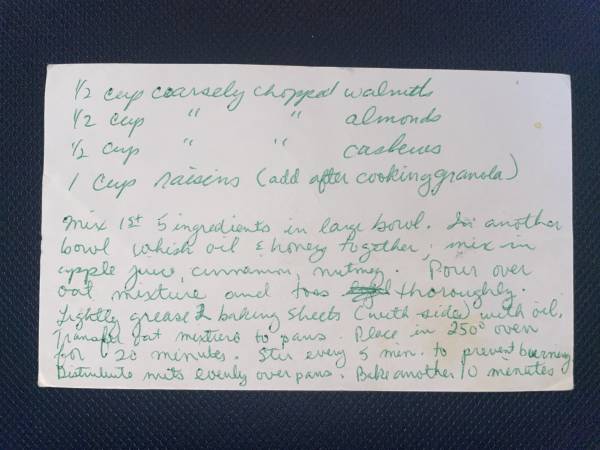 1/2 cup coarsely chopped walnuts
1/2 cup " " almonds
1/2 cup " " cashews
1 cup raisins (add after cooking granola)
Mix 1st 5 ingredients in large bowl. In another
bowl whisk oil & honey together, mix in
apple juice, cinnamon, nutmeg. Pour over
oat mixture and toss thoroughly.
Lightly grease 2 baking sheets (with sides) with oil.
Transfer oat mixture to pans. Place in 250° oven
for 20 minutes. Stir every 5 min. to prevent burning
Distribute nuts evenly over pans. Bake another 10 minutes